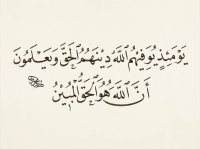 يَوْمَئِذٍ يُوَفِّيهِمُ اللَّهُ دِينَهُمُ الْحَقَّ وَيَعْلَمُونَ
أَنَّ اللَّهَ هُوَ الْحَقُّ الْمُبِينُ